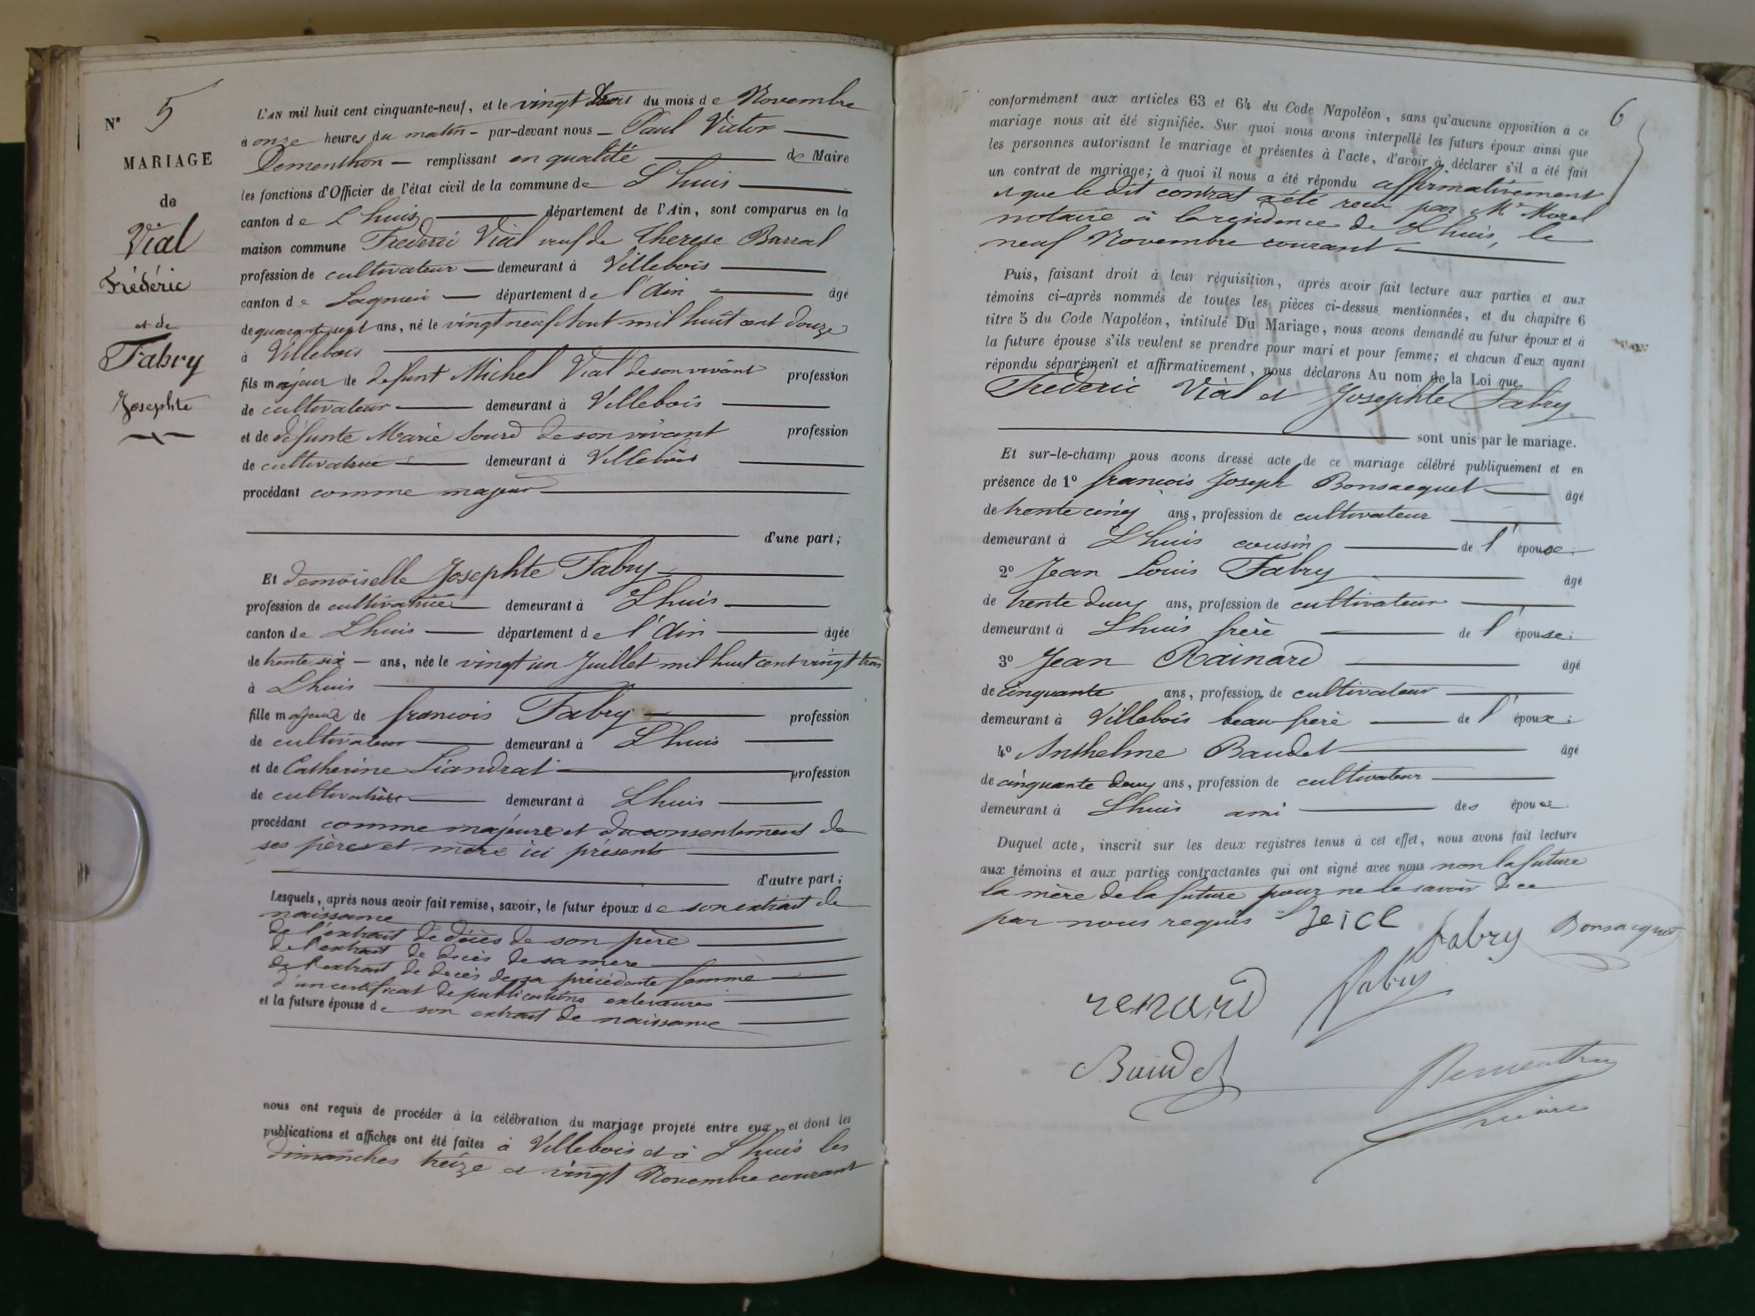 N° 5
MARIAGE
de
Vial
Frédéric
et de
Fabry
Josephte
L'AN mil huit cent cinquante-neuf, et le vingt trois du mois de Novembre
à onze heures du matin - par-devant nous - Paul Victor
Dementhon - remplissant en qualité de Maire
les fonctions d'Officier de l'état civil de la commune de Lhuis
canton de Lhuis département de l'Ain, sont comparus en la
maison commune Frederic Vial veuf de Therese Barral
profession de cultivateur demeurant à Villebois
canton de Lagnieu département de l'Ain âgé
de quarant sept ans, né le vingt neuf Aout mil huit cent douze
à Villebois
fils majeur de defunt Michel Vial de son vivant profession
de cultivateur demeurant à Villebois
et de défunte Marie Sourd de son vivant profession
de cultivatrice demeurant à Villebois
procédant comme majeur
d'une part;
Et demoiselle Josephte Fabry
profession de cultivatrice demeurant à Lhuis
canton de Lhuis département de l'Ain âgée
de trente six - ans, née le vingt un Juillet mil huit cent vingt trois
à Lhuis
fille majeure de francois Fabry profession
de cultivateur demeurant à Lhuis
et de Catherine Liandrat profession
de cultivatrice demeurant à Lhuis
procédant comme majeure et du consentement de
ses pères et mère ici présents
d'autre part;
Lesquels, après nous avoir fait remise, savoir, le futur époux de son extrait de
naissance
de l'extrait de décès de son père
de l'extrait de decès de sa mere
de l'extrait de decès de sa précédente femme
d'un certificat de publications exterieures
et la future épouse de son extrait de naissance
nous ont requis de procéder à la célébration du mariage projeté entre eux, et dont les
publications et affiches ont été faites à Villebois et à Lhuis les
dimanches treize et vingt Novembre courant
6
conformément aux articles 63 et 64 du Code Napoléon, sans qu'aucune opposition à ce
mariage nous ait été signifiée. Sur quoi nous avons interpellé les futurs époux ainsi que
les personnes autorisant le mariage et présentes à l'acte, d'avoir à déclarer s'il a été fait
un contrat de mariage; à quoi il nous a été répondu affirmativement
et que le dit contrat a été recu par Me Morel
notaire à la residence de Lhuis, le
neuf Novembre courant
Puis, faisant droit à leur réquisition, après avoir fait lecture aux parties et aux
témoins ci-après nommés de toutes les pièces ci-dessus mentionnées, et du chapitre 6
titre 5 du Code Napoléon, intitulé Du Mariage, nous avons demandé au futur époux et à
la future épouse s'ils veulent se prendre pour mari et pour femme; et chacun d'eux ayant
répondu séparément et affirmativement, nous déclarons Au nom de la Loi que
Frédéric Vial et Josephte Fabry
sont unis par le mariage.
Et sur-le-champ nous avons dressé acte de ce mariage célébré publiquement et en
présence de 1° francois Joseph Bonsacquet âgé
de trente cinq ans, profession de cultivateur
demeurant à Lhuis cousin de l'épouse.
2° Jean Louis Fabry âgé
de trente deux ans, profession de cultivateur
demeurant à Lhuis frère de l'épouse.
3° Jean Rainard âgé
de cinquante ans, profession de cultivateur
demeurant à Villebois beau frère de l'époux.
4° Anthelme Baudet âgé
de cinquante deux ans, profession de cultivateur
demeurant à Lhuis ami des époux.
Duquel acte, inscrit sur les deux registres tenus à cet effet, nous avons fait lecture
aux témoins et aux parties contractantes qui ont signé avec nous non la future
la mère de la future pour ne le savoir de ce
par nous requis
fabry Bonsacquet
renard fabry
Baudet Dementhon
maire